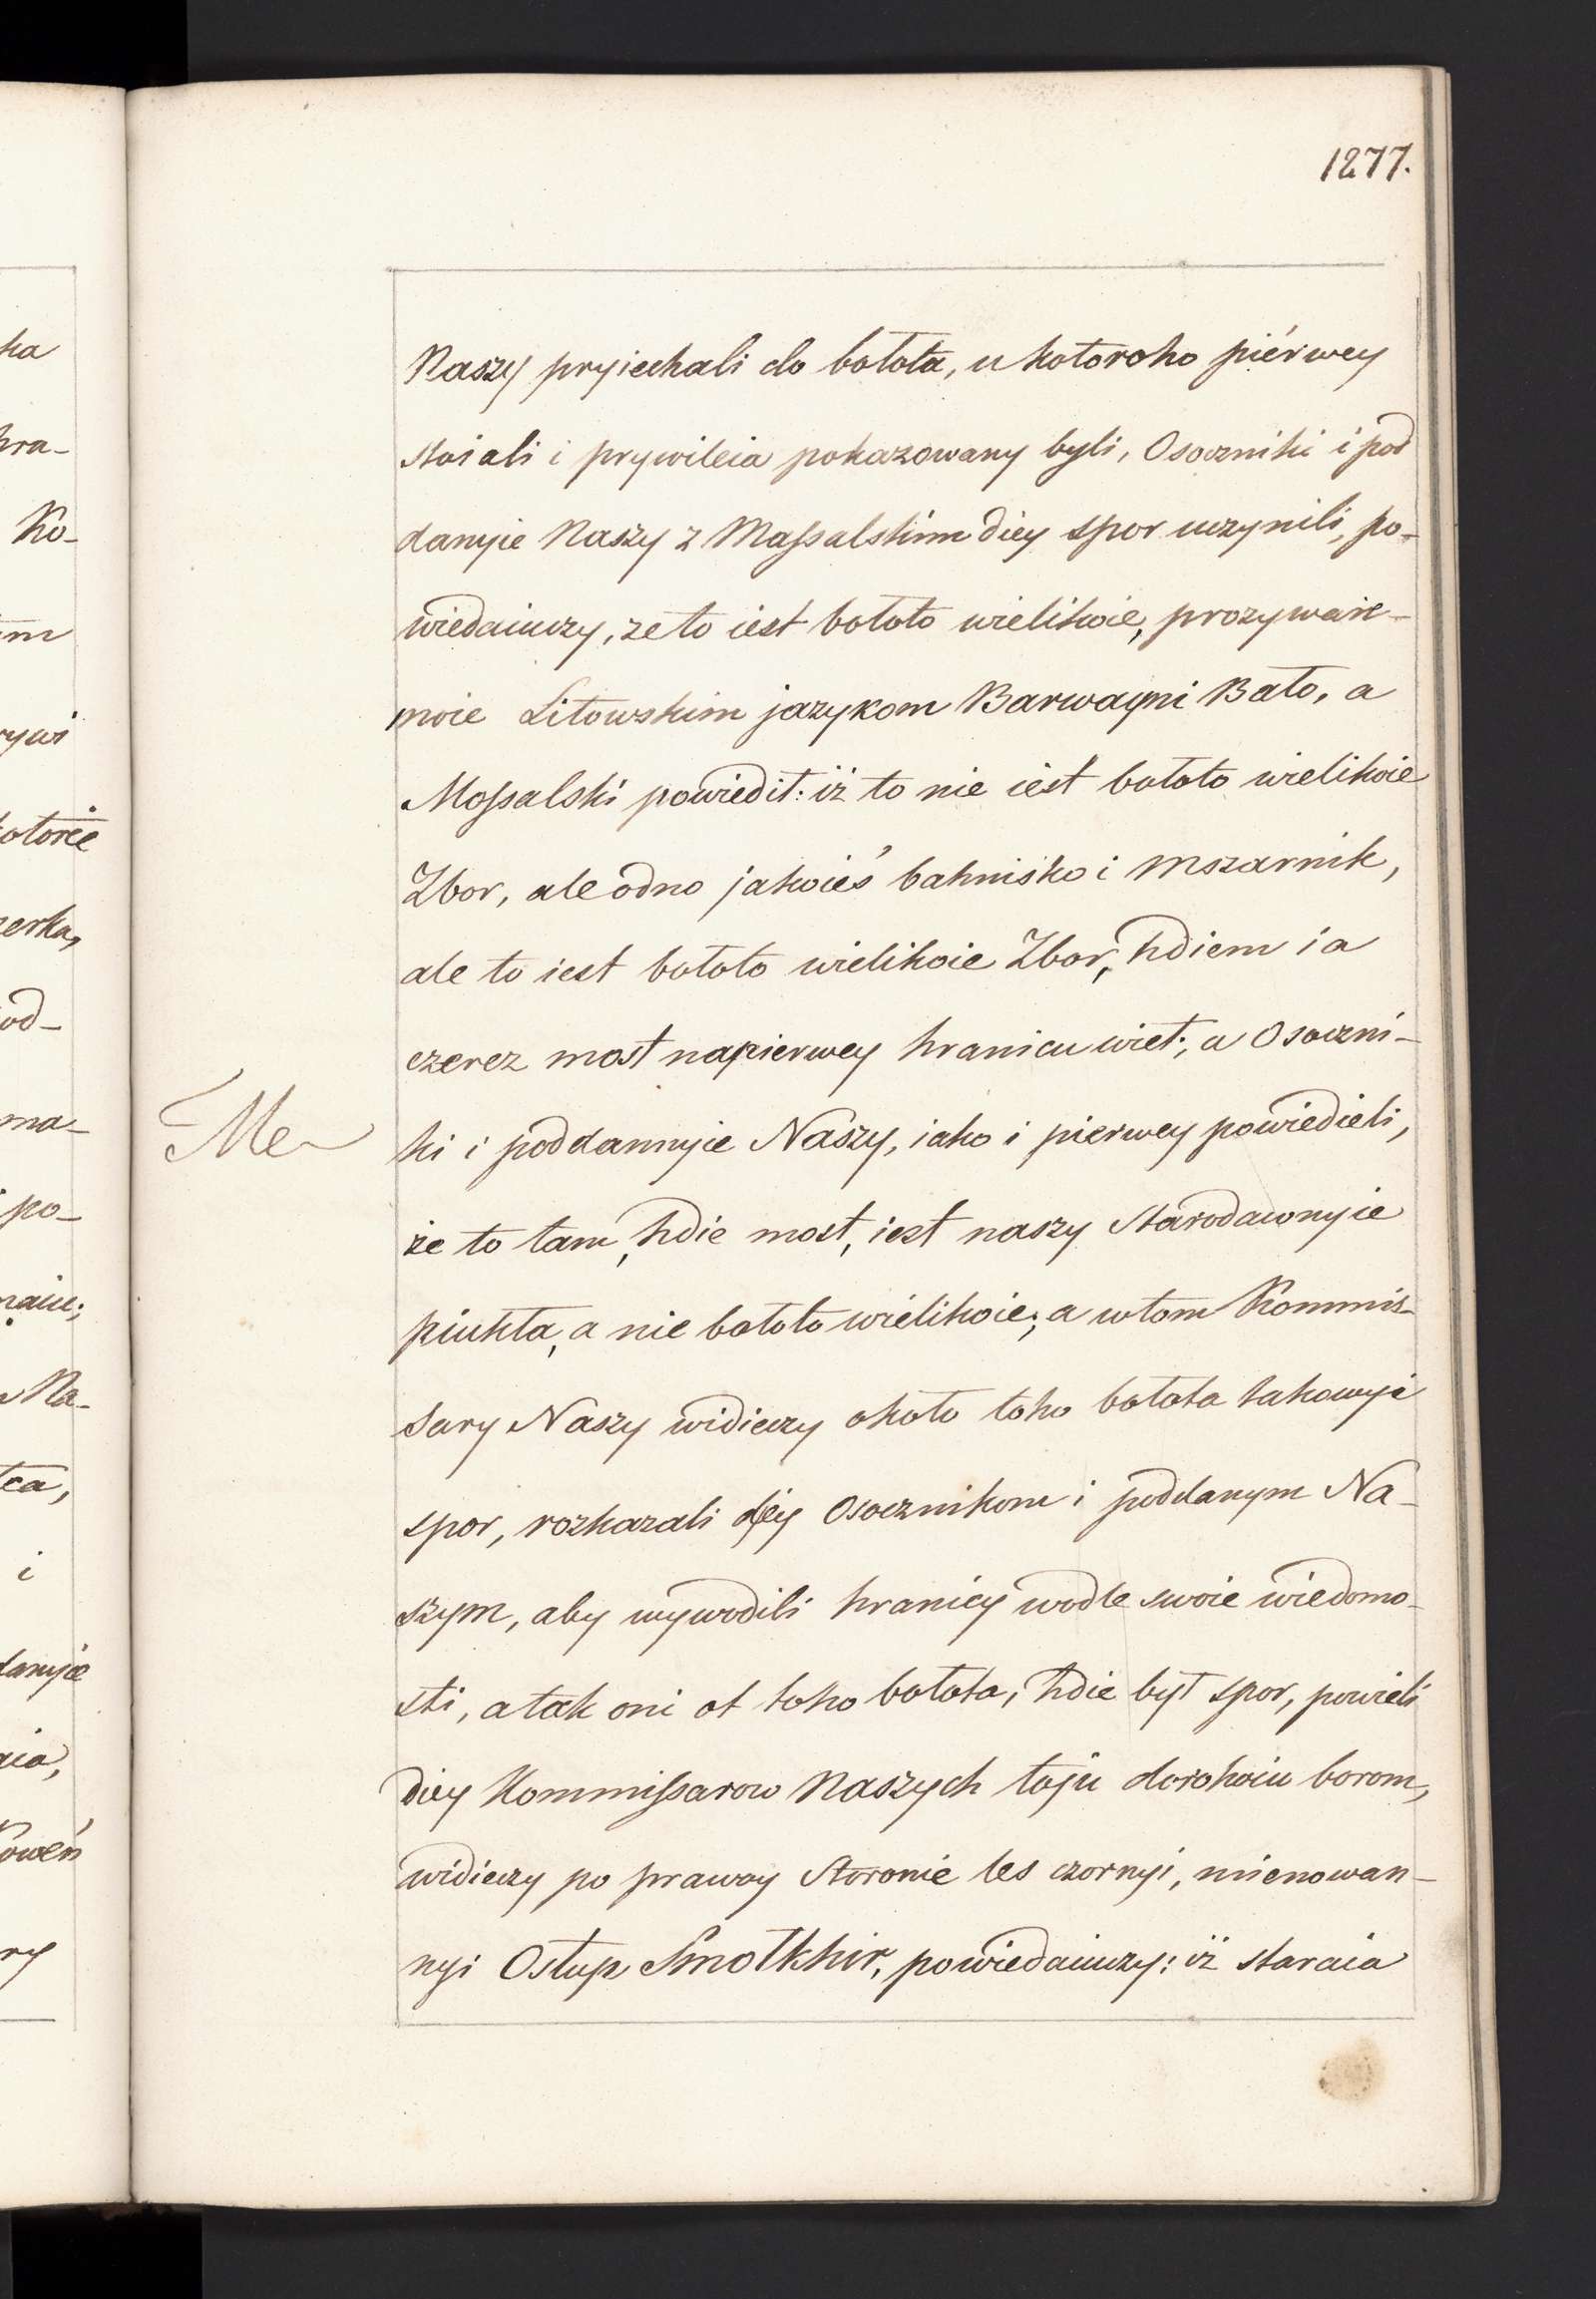 1277.
Naszy pryiechali do bołota, u kotoroho piérwey
stoiali i prywileia pokazowany byli, Osoczniki i pod
danyie Naszy z Massalskim diey spor uczynili, po-
wiedaiuczy, ze to iest bołoto wielikoie, prozywaie-
moie Litowskim jazykom Barwayni Bało, a
Mossalski powiedił: iż to nie iest bołoto wielikoie
Zbor, ale odno jakoieś bahnisko i mszarnik,
ale to iest bołoto wielikoie Zbor, hdiem ia
czerez most napierwey hranicu wieł; a Osoczni-
Me
ki i poddannyie Naszy, iako i pierwey powiedieli,
że to tam, hdie most, iest naszy Starodawnyie
piukta, a nie bołoto wielikoie; a wtom Kommis-
sary Naszy widieczy około toho bołota takowyi
spor, rozkazali dey Osocznikom i poddanym Na-
szym, aby wywodili hranicy wodle swoie wiedomo-
sti, a tak oni ot toho bołota, hdie był spor, powieli
diey Kommissarow Naszych toju dorohoiu borom,
widieczy po prawoy Storonie les czornyi, mienowan-
nyi Ostup Smołkhir, powiedaiuczy: iż staraia
ka
hra-
Ko-
im
rywi
kotorie
zerka,
od-
ma-
i po-
naiu;
Na-
i
danyie
aia,
owéń
ry